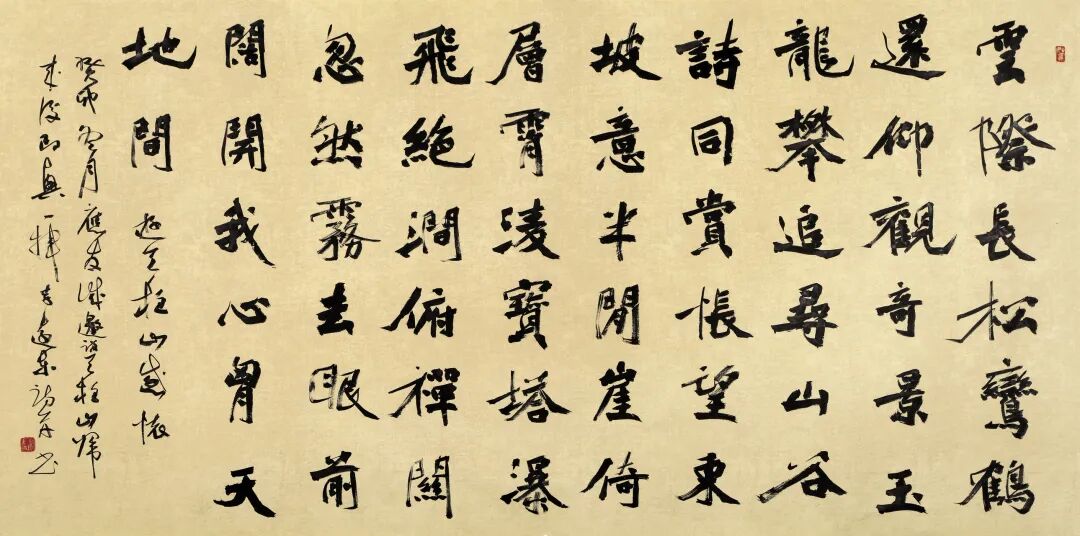 雲際長松鸞鶴
還仰觀奇景玉
龍攀追尋山谷
詩同賞悵望東
坡意半閒崖倚
層霄淩寶塔瀑
飛絕澗俯禪關
忽然霧去眼前
闊開我心胸天
地間
遊天柱山感懷
癸卯冬月應友誠邀訪天柱山歸
來後即興一揮